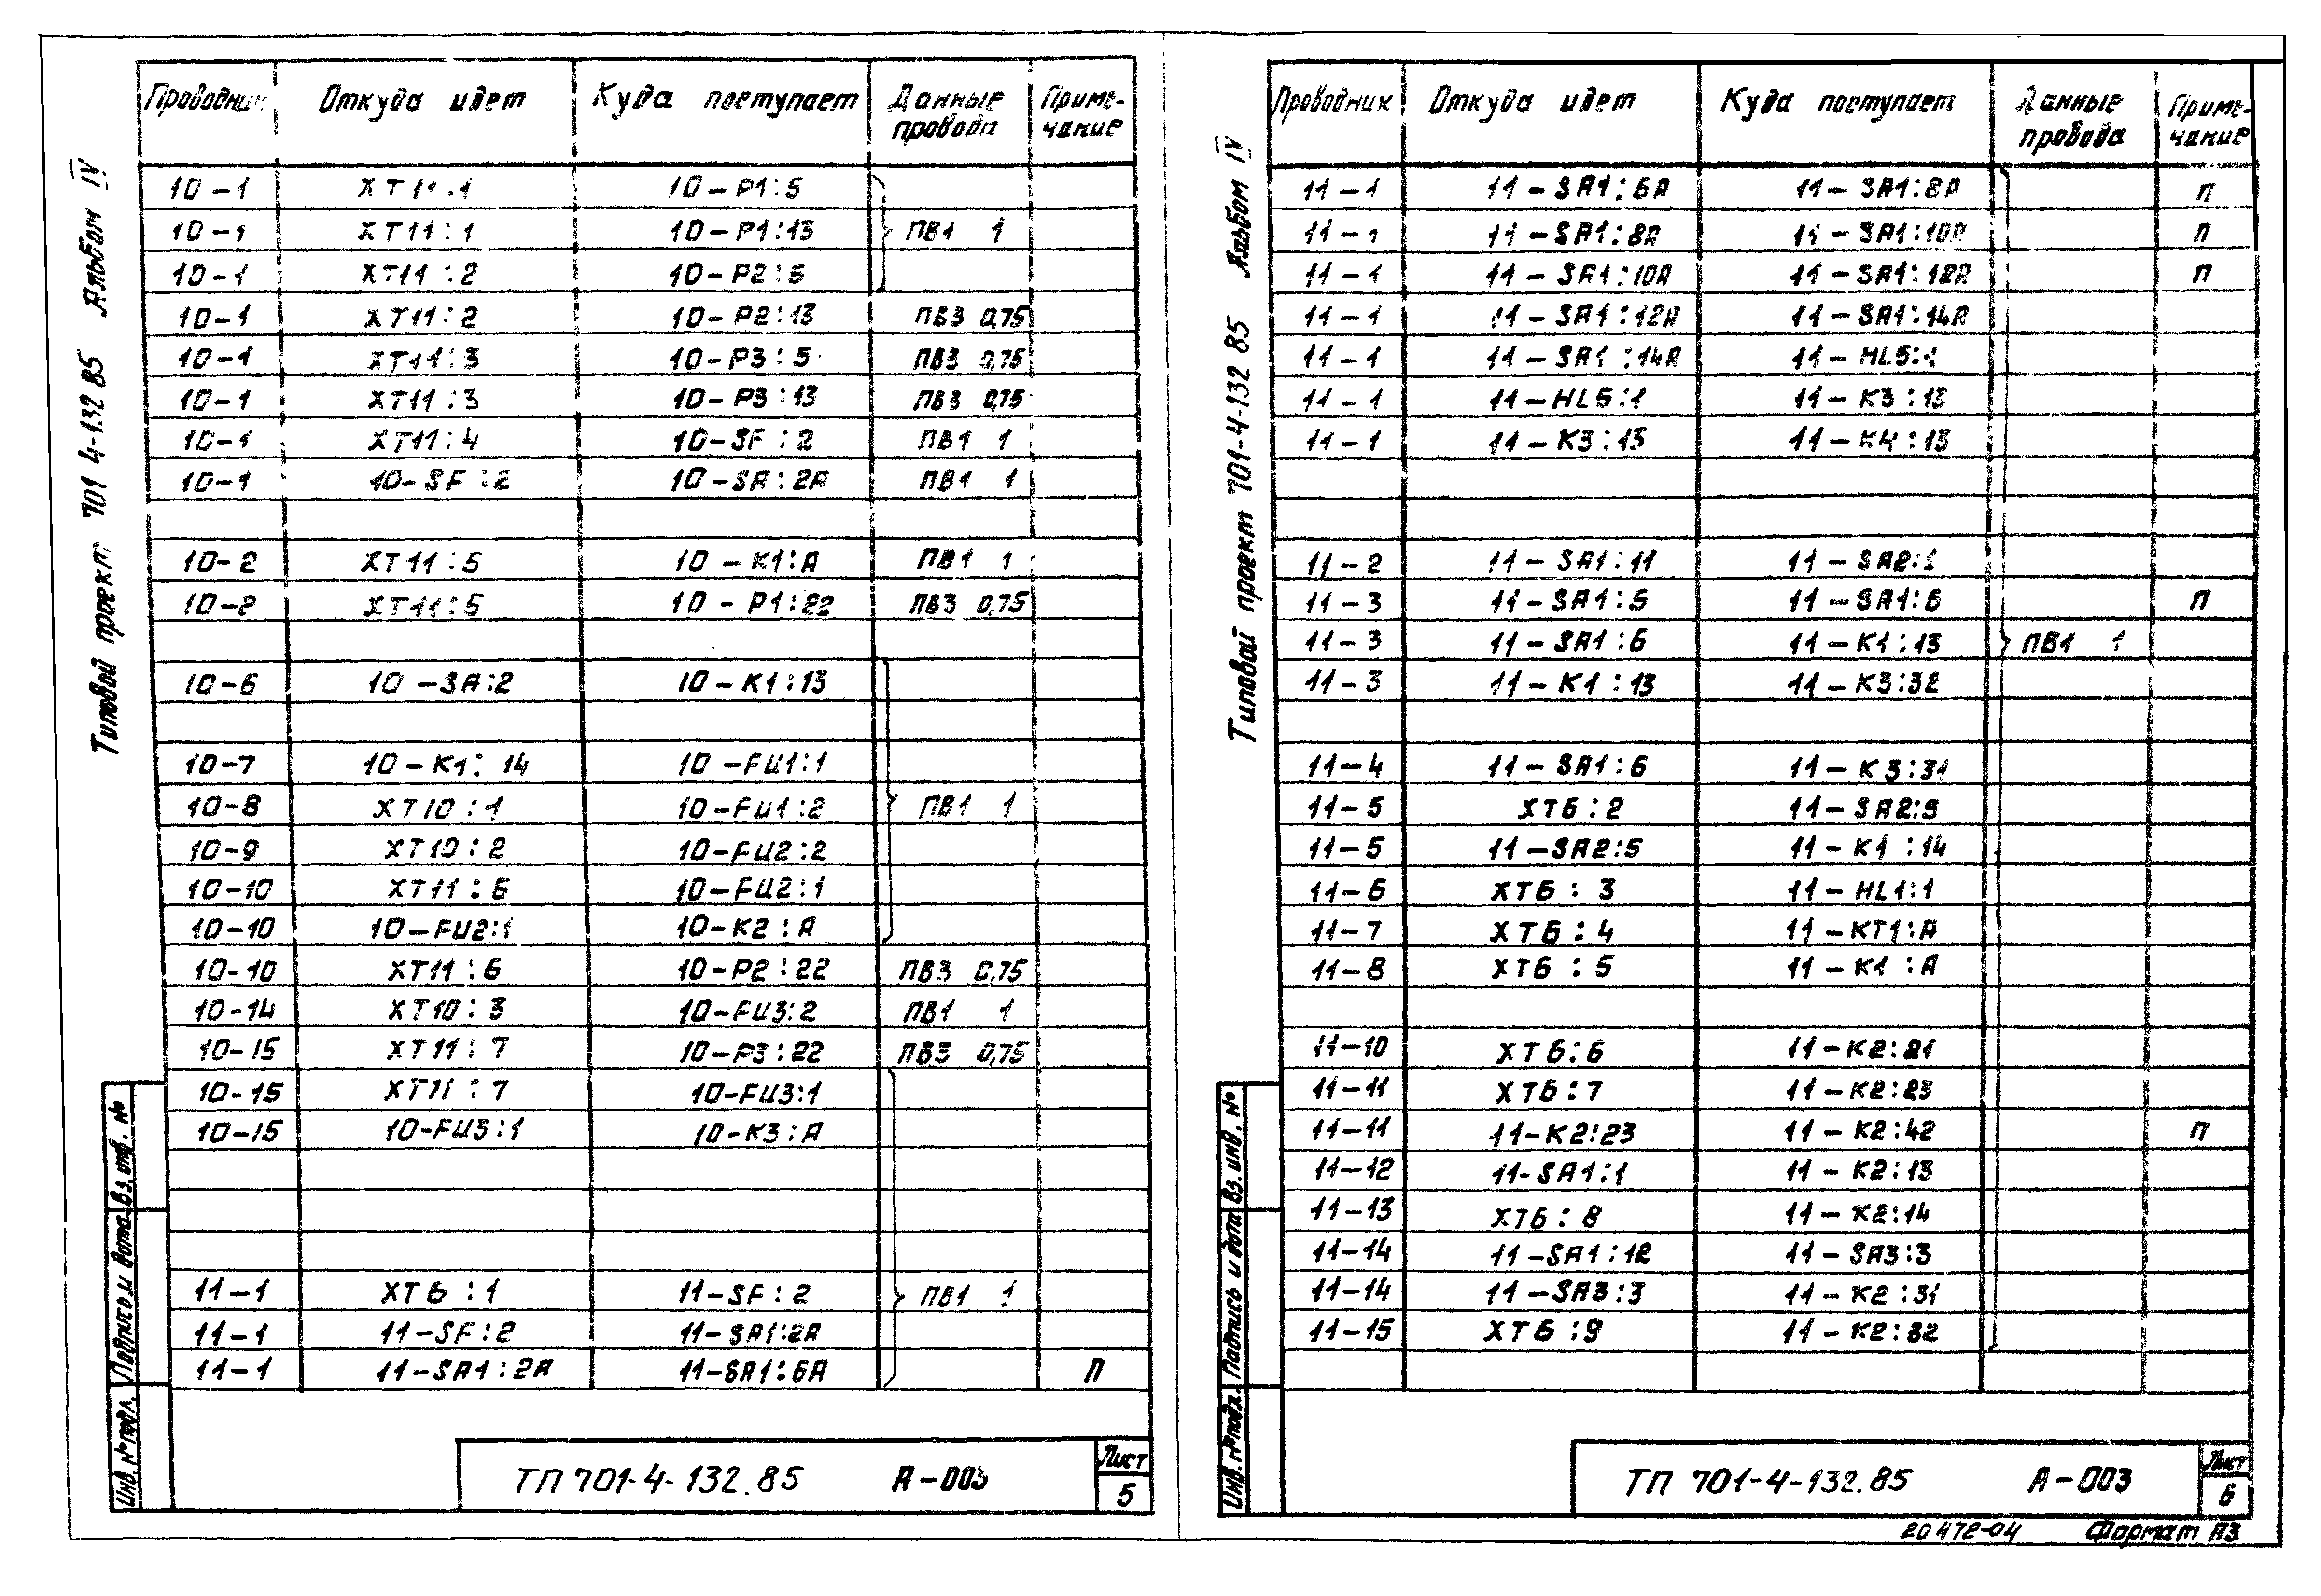 Проводник Откуда идет Куда поступает Данные провода Примечание
10-1 XT11:1 10-P1:5
10-1 XT11:1 10-P1:13 ПВ1 1
10-1 XT11:2 10-P2:5
10-1 XT11:2 10-P2:13 ПВ3 0,75
10-1 XT11:3 10-P3:5 ПВ3 0,75
10-1 XT11:3 10-P3:13 ПВ3 0,75
10-1 XT11:4 10-SF:2 ПВ1 1
10-1 10-SF:2 10-SA:2A ПВ1 1
10-2 XT11:5 10-K1:A ПВ1 1
10-2 XT11:5 10-P1:22 ПВ3 0,75
10-6 10-SA:2 10-K1:13
10-7 10-K1:14 10-FU1:1
10-8 XT10:1 10-FU1:2 ПВ1 1
10-9 XT10:2 10-FU2:2
10-10 XT11:6 10-FU2:1
10-10 10-FU2:1 10-K2:A
10-10 XT11:6 10-P2:22 ПВ3 0,75
10-14 XT10:3 10-FU3:2 ПВ1 1
10-15 XT11:7 10-P3:22 ПВ3 0,75
10-15 XT11:7 10-FU3:1
10-15 10-FU3:1 10-K3:A
11-1 XT6:1 11-SF:2 ПВ1 1
11-1 11-SF:2 11-SA1:2A
11-1 11-SA1:2A 11-SA1:6A П
Типовой проект 701 4-132 85 Альбом IV
Инв. № подл. Подпись и дата Вз. инв. №
ТП 701-4-132.85 А-003 Лист
5
Проводник Откуда идет Куда поступает Данные провода Примечание
11-1 11-SA1:6A 11-SA1:8A П
11-1 11-SA1:8A 11-SA1:10A П
11-1 11-SA1:10A 11-SA1:12A П
11-1 11-SA1:12A 11-SA1:14A
11-1 11-SA1:14A 11-HL5:1
11-1 11-HL5:1 11-K3:13
11-1 11-K3:13 11-K4:13
11-2 11-SA1:11 11-SA2:1
11-3 11-SA1:5 11-SA1:6 П
11-3 11-SA1:6 11-K1:13 ПВ1 1
11-3 11-K1:13 11-K3:32
11-4 11-SA1:6 11-K3:31
11-5 XT6:2 11-SA2:5
11-5 11-SA2:5 11-K1:14
11-6 XT6:3 11-HL1:1
11-7 XT6:4 11-KT1:A
11-8 XT6:5 11-K1:A
11-10 XT6:6 11-K2:21
11-11 XT6:7 11-K2:23
11-11 11-K2:23 11-K2:42 П
11-12 11-SA1:1 11-K2:13
11-13 XT6:8 11-K2:14
11-14 11-SA1:12 11-SA3:3
11-14 11-SA3:3 11-K2:31
11-15 XT6:9 11-K2:32
Типовой проект 701-4-132 85 Альбом IV
Инв. № подл. Подпись и дата Вз. инв. №
ТП 701-4-132.85 А-003 Лист
6
20472-04 Формат А3